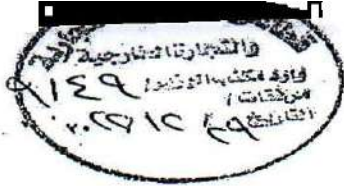 والتجارة الخارجية
وارد مكتب الوزير / ٩١٤٩
مرفقات /
التاريخ / ٢٩ / ١٢ / ٢٠٢٢